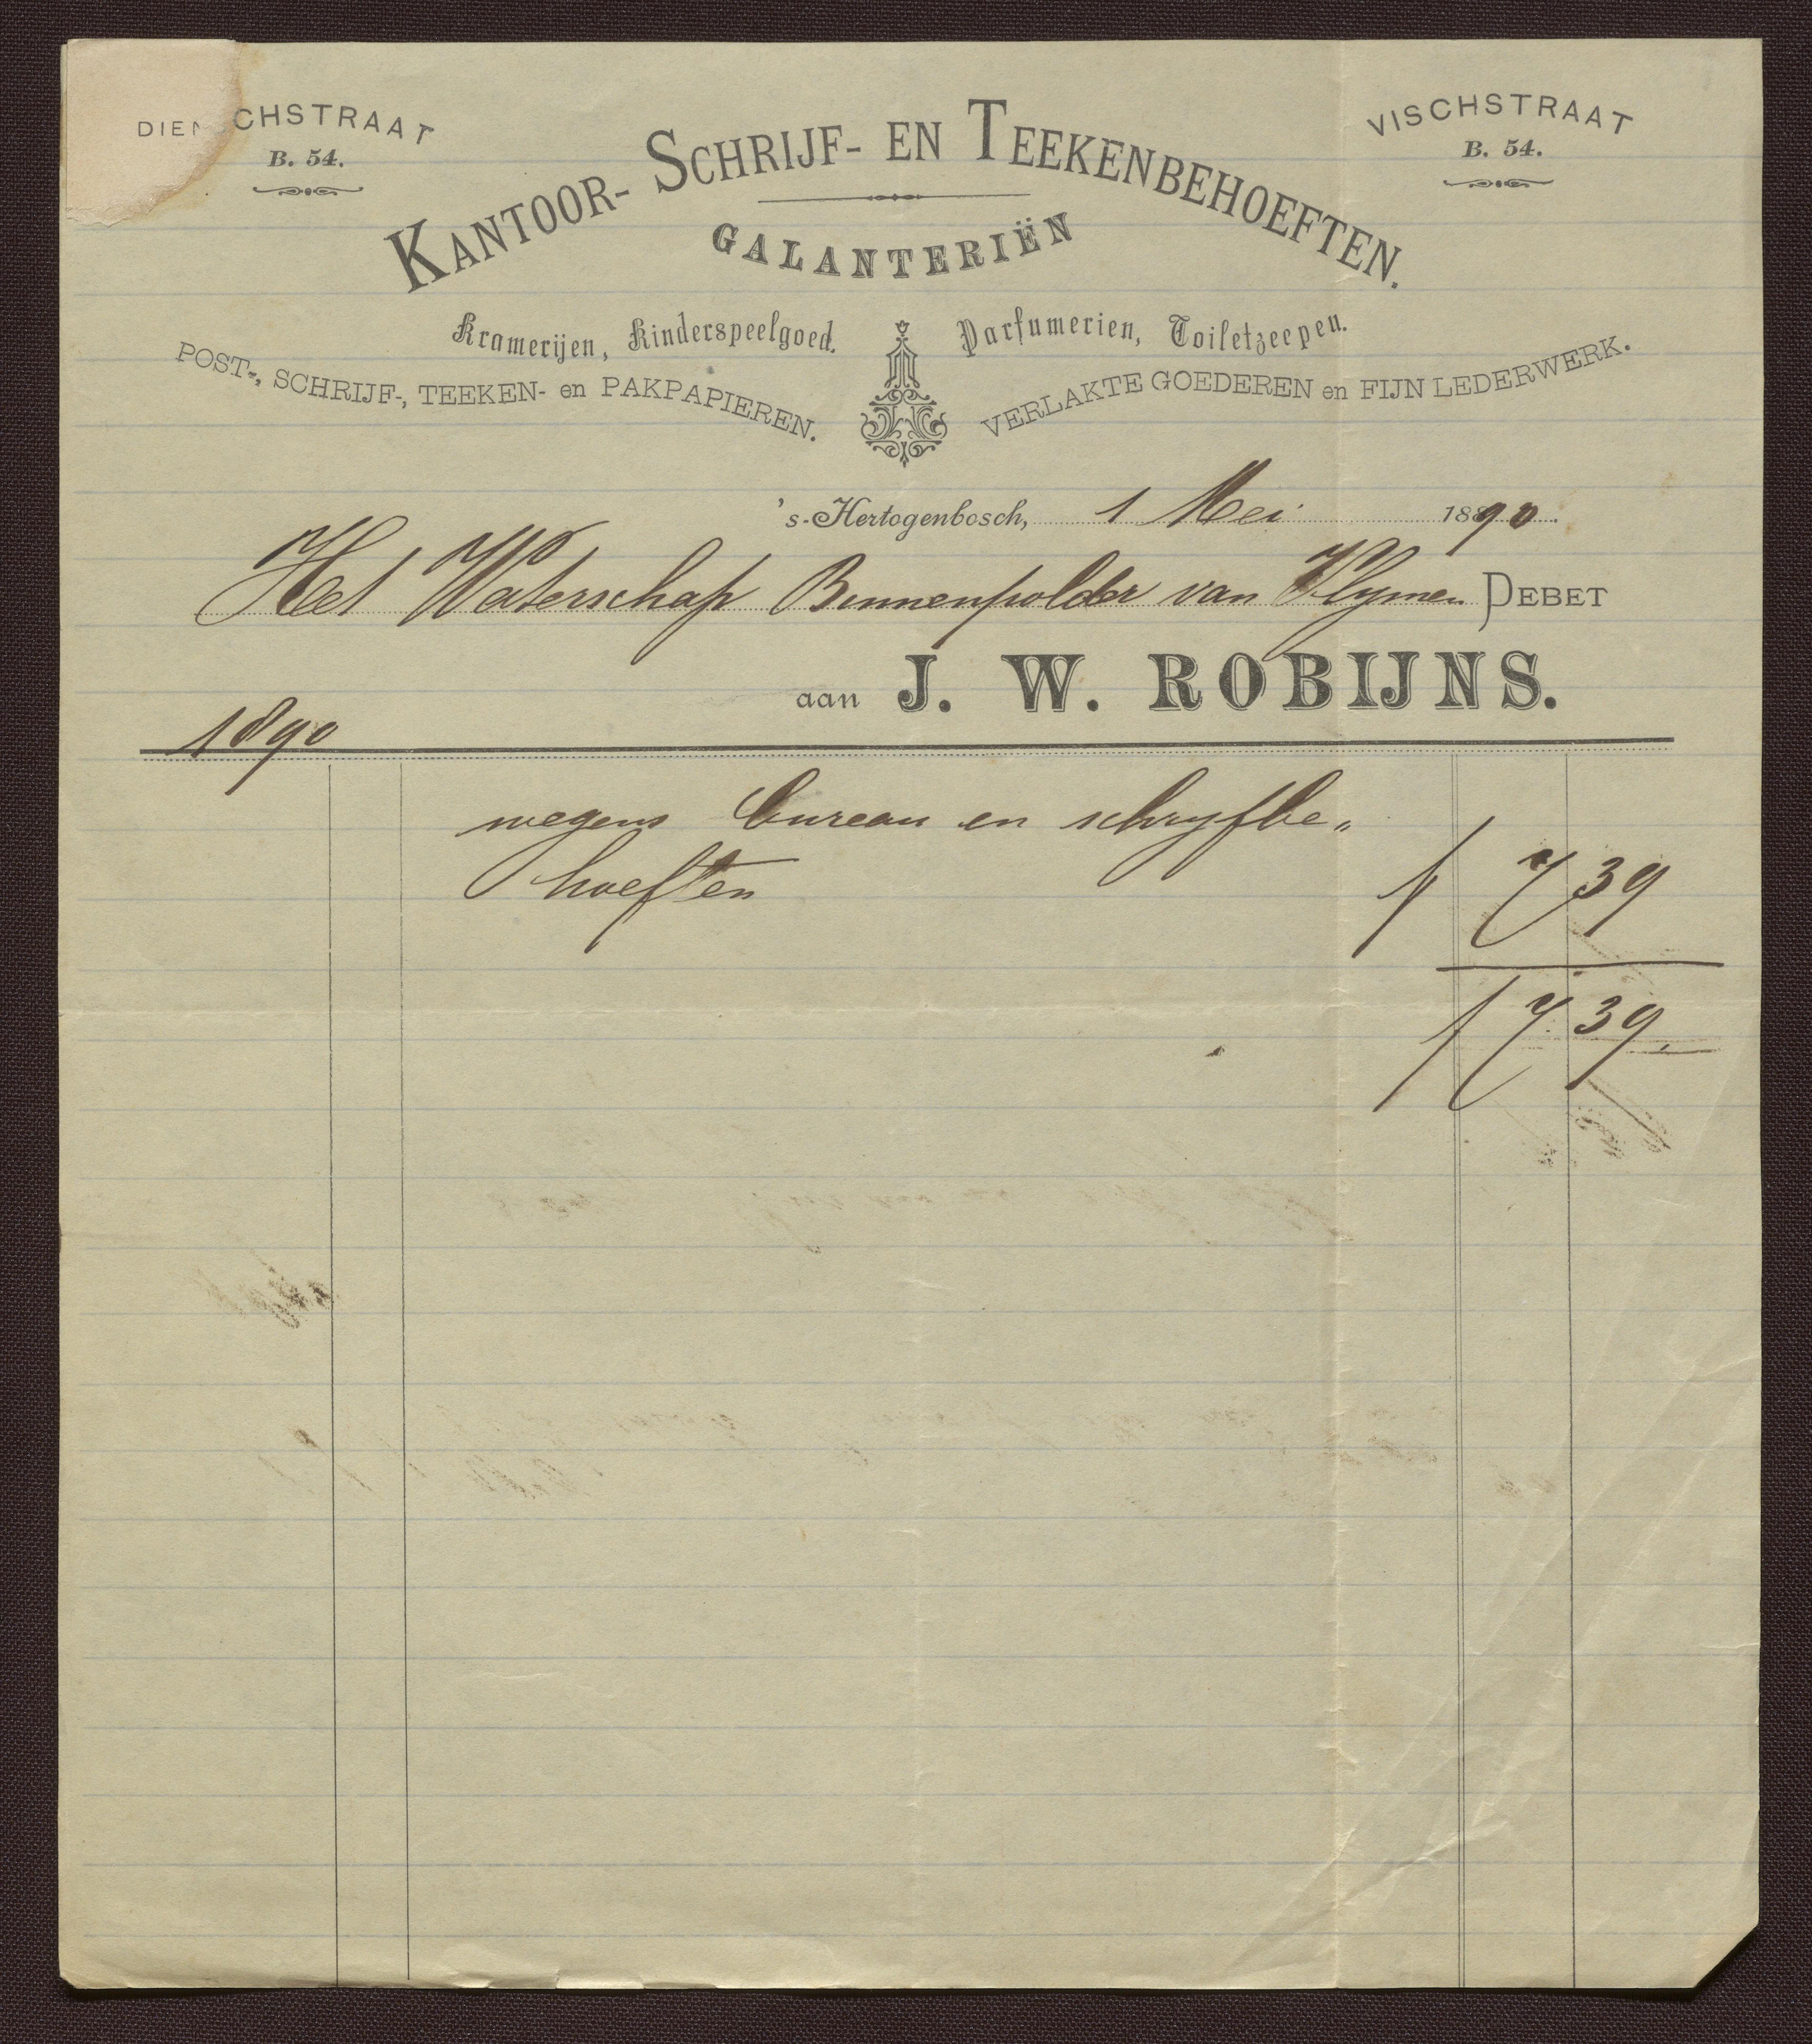 VISCHSTRAAT
B. 54.
B. 54.
KANTOOR- SCHRIJF- EN TEEKENBEHOEFTEN.
GALANTERIËN
Kramerijen, Kinderspeelgoed. Parfumerien, Toiletzeepen.
POST-, SCHRIJF-, TEEKEN- en PAKPAPIEREN. VERLAKTE GOEDEREN en FIJN LEDERWERK.
's-Hertogenbosch, 1 Mei 1890.
Het Waterschap Binnenpolder van Vlymen DEBET
aan J. W. ROBIJNS.
1890
wegens bureau en schryfbe„
hoeften f 7 39
f 7.39.